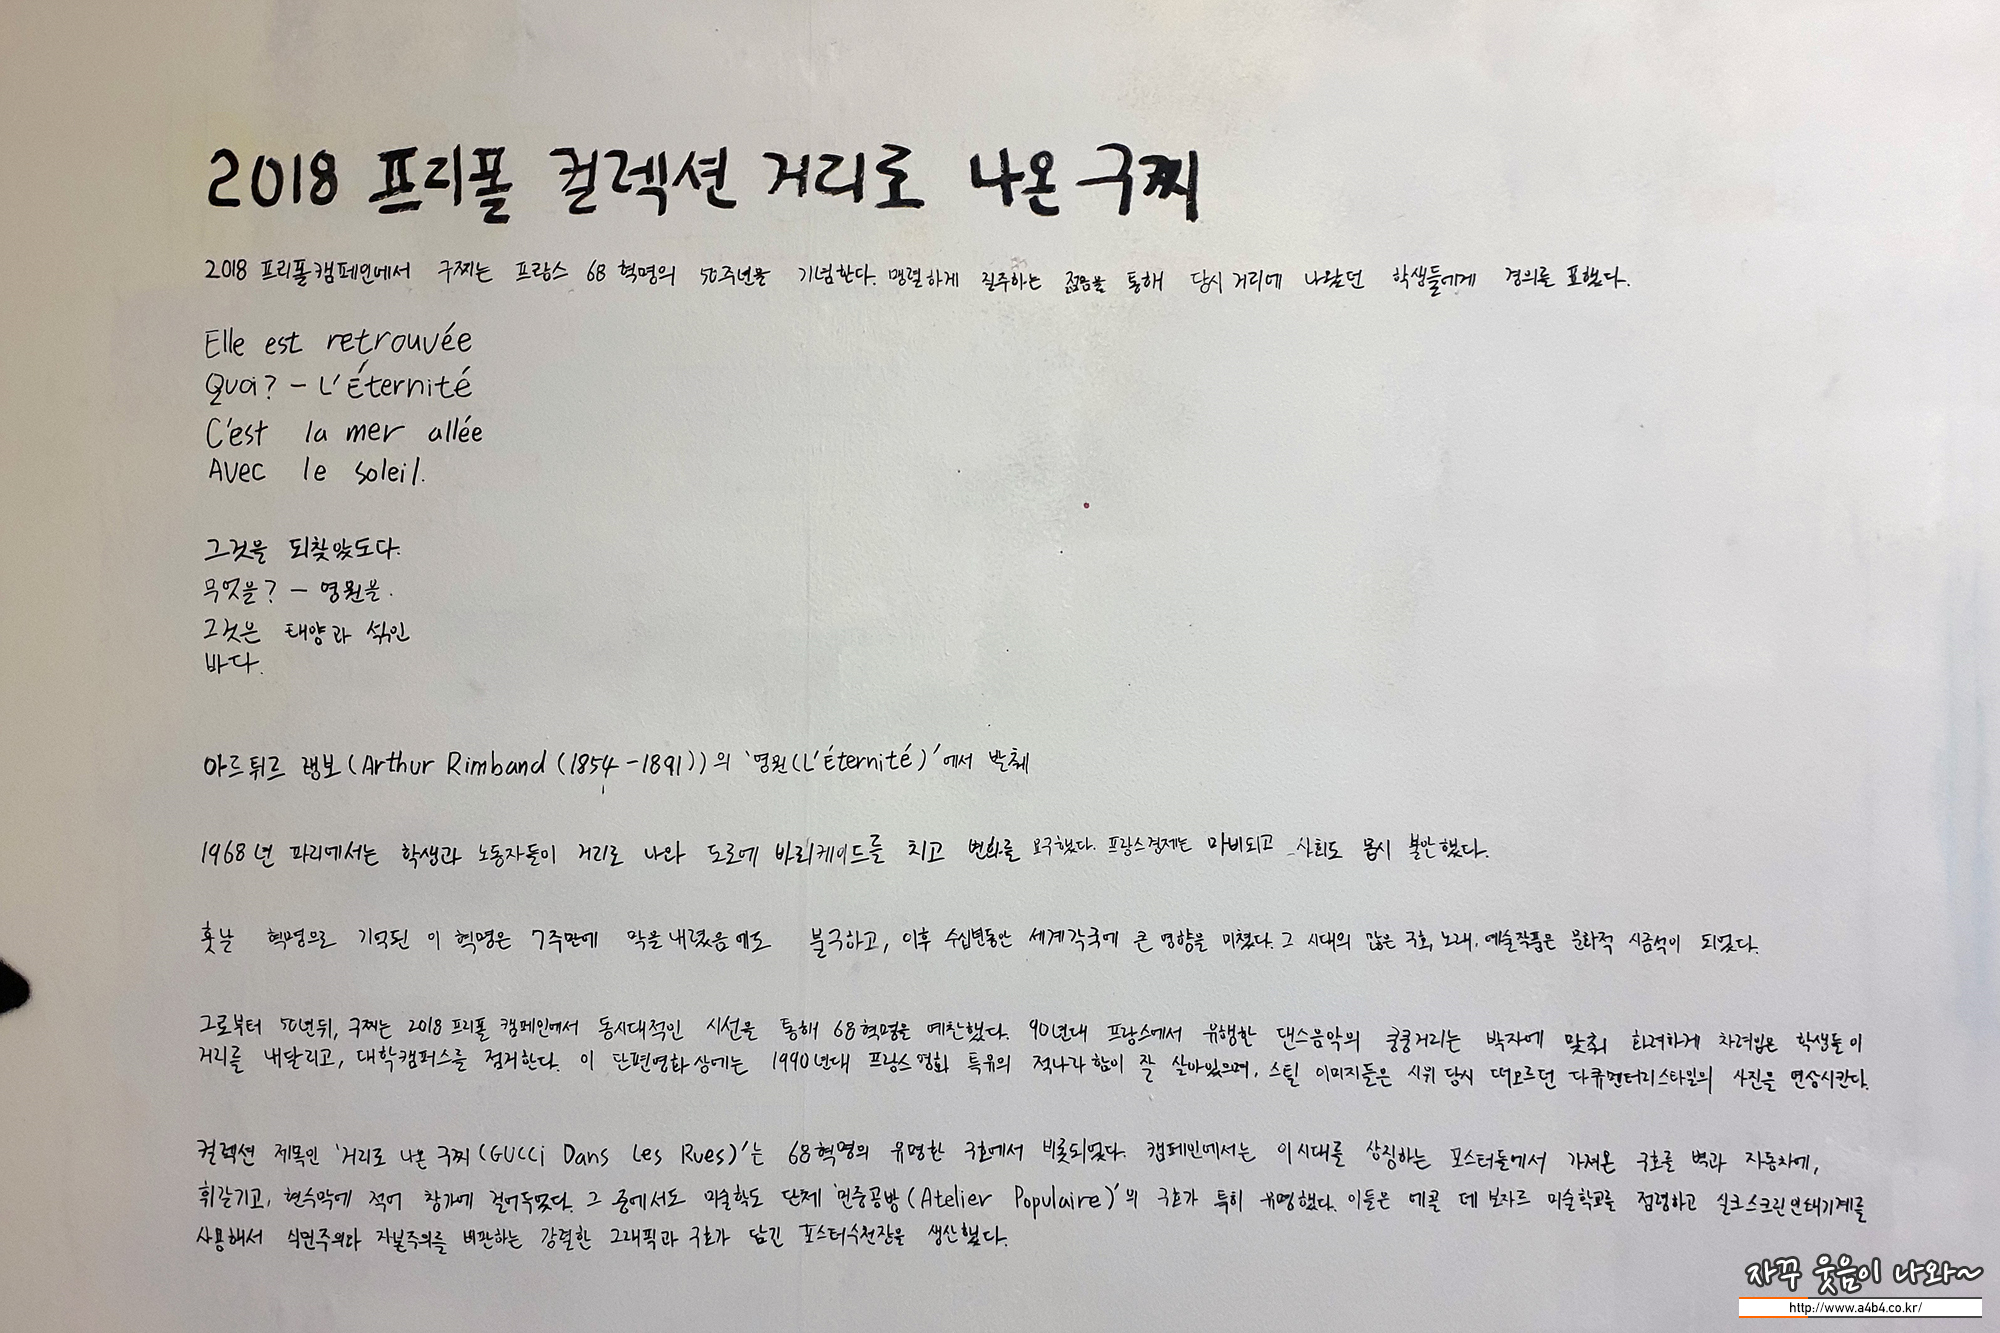 2018 프리폴 컬렉션 거리로 나온 구찌
2018 프리폴 캠페인에서 구찌는 프랑스 68 혁명의 50주년을 기념한다. 맹렬하게 질주하는 젊음을 통해 당시 거리에 나왔던 학생들에게 경의를 표했다.
Elle est retrouvée
Quoi? - L'Éternité
C'est la mer allée
Avec le soleil.
그것을 되찾았도다.
무엇을? - 영원을.
그것은 태양과 섞인
바다.
아르튀르 랭보 (Arthur Rimband (1854-1891))의 '영원(L'Éternité)'에서 발췌
1968년 파리에서는 학생과 노동자들이 거리로 나와 도로에 바리케이드를 치고 변화를 요구했다. 프랑스 경제는 마비되고 사회도 몹시 불안했다.
훗날 혁명으로 기억된 이 혁명은 7주만에 막을 내렸음에도 불구하고, 이후 수십년동안 세계각국에 큰 영향을 미쳤다. 그 시대의 많은 구호, 노래, 예술작품은 문화적 시금석이 되었다.
그로부터 50년뒤, 구찌는 2018 프리폴 캠페인에서 동시대적인 시선을 통해 68혁명을 예찬했다. 90년대 프랑스에서 유행한 댄스음악의 쿵쿵거리는 박자에 맞춰 화려하게 차려입은 학생들이
거리를 내달리고, 대학캠퍼스를 점거한다. 이 단편영화 상에는 1990년대 프랑스 영화 특유의 적나라함이 잘 살아있으며, 스틸 이미지들은 시위 당시 떠오르던 다큐멘터리스타일의 사진을 연상시킨다.
컬렉션 제목인 '거리로 나온 구찌 (GUCCi Dans Les Rues)'는 68혁명의 유명한 구호에서 비롯되었다. 캠페인에서는 이시대를 상징하는 포스터들에서 가져온 구호를 벽과 자동차에,
휘갈기고, 현수막에 적어 창가에 걸어두었다. 그 중에서도 미술학도 단체 '민중공방 (Atelier Populaire)'의 구호가 특히 유명했다. 이들은 에콜 데 보자르 미술학교를 점령하고 실크스크린인쇄기계를
사용해서 식민주의와 자본주의를 비판하는 강렬한 그래픽과 구호가 담긴 포스터수천장을 생산했다.
자꾸 웃음이 나와~
http://www.a4b4.co.kr/